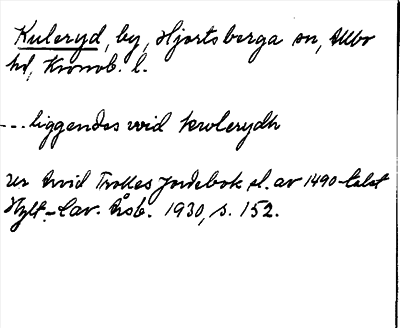 Kuleryd, by, Hjortsberga sn, Allbo
hd, Kronob. l.
--- liggendes wid kwlerydh
ur Arvid Trolles Jordebok sl. av 1490-talet
Hylt.-Cav. Årsb. 1930, s. 152.